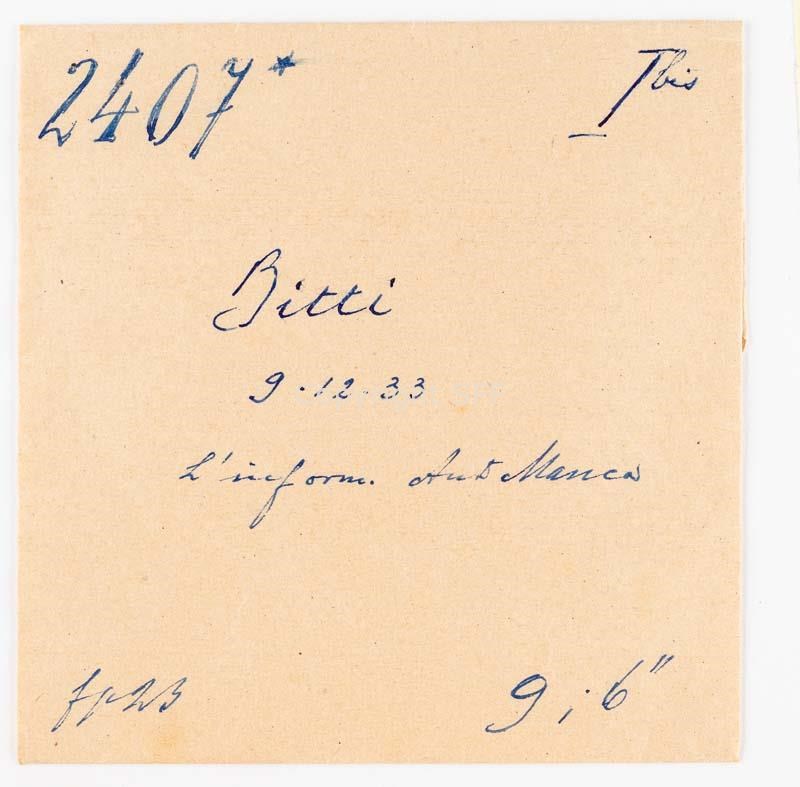 2407* I bis
Bitti
9.12.33
L'inform. Anto Manca
fp 23 9; 6"